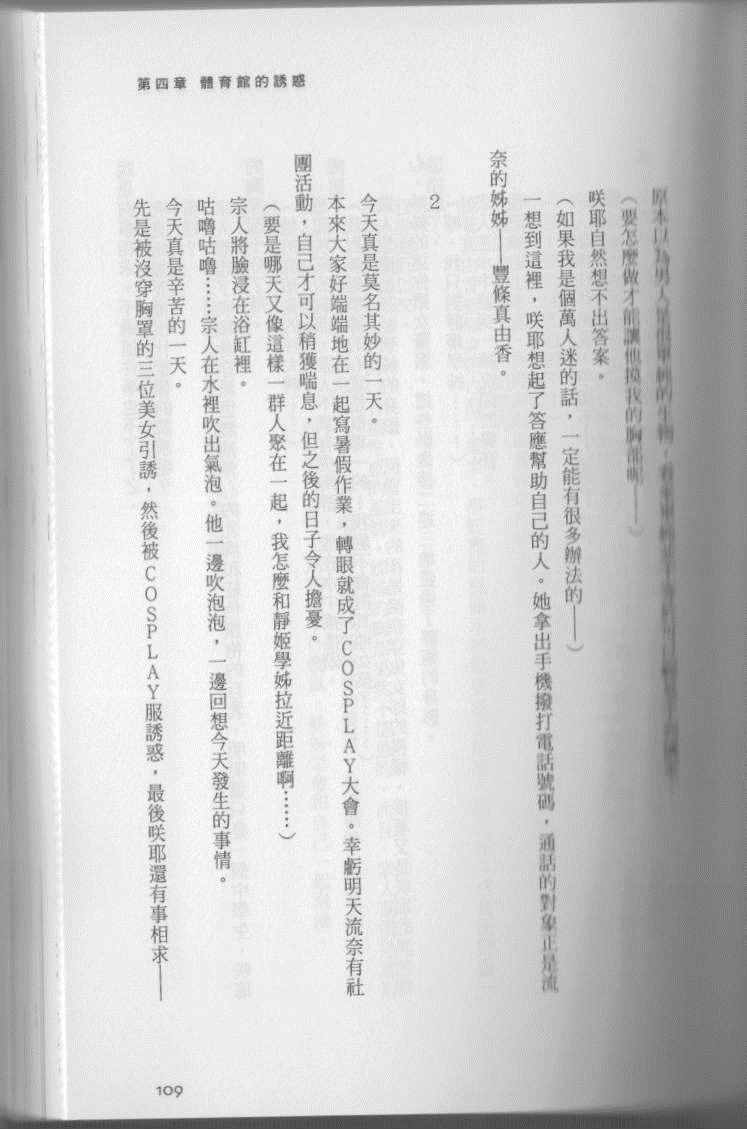 第四章 體育館的誘惑
原本以為男人是很單純的生物，
（要怎麼做才能讓他摸我的胸部呢——）
咲耶自然想不出答案。
（如果我是個萬人迷的話，一定能有很多辦法的——）
一想到這裡，咲耶想起了答應幫助自己的人。她拿出手機撥打電話號碼，通話的對象正是流
奈的姊姊——豐條真由香。
2
今天真是莫名其妙的一天。
本來大家好端端地在一起寫暑假作業，轉眼就成了COSPLAY大會。幸虧明天流奈有社
團活動，自己才可以稍獲喘息，但之後的日子令人擔憂。
（要是哪天又像這樣一群人聚在一起，我怎麼和靜姬學姊拉近距離啊……）
宗人將臉浸在浴缸裡。
咕嚕咕嚕……宗人在水裡吹出氣泡。他一邊吹泡泡，一邊回想今天發生的事情。
今天真是辛苦的一天。
先是被沒穿胸罩的三位美女引誘，然後被COSPLAY服誘惑，最後咲耶還有事相求——
109